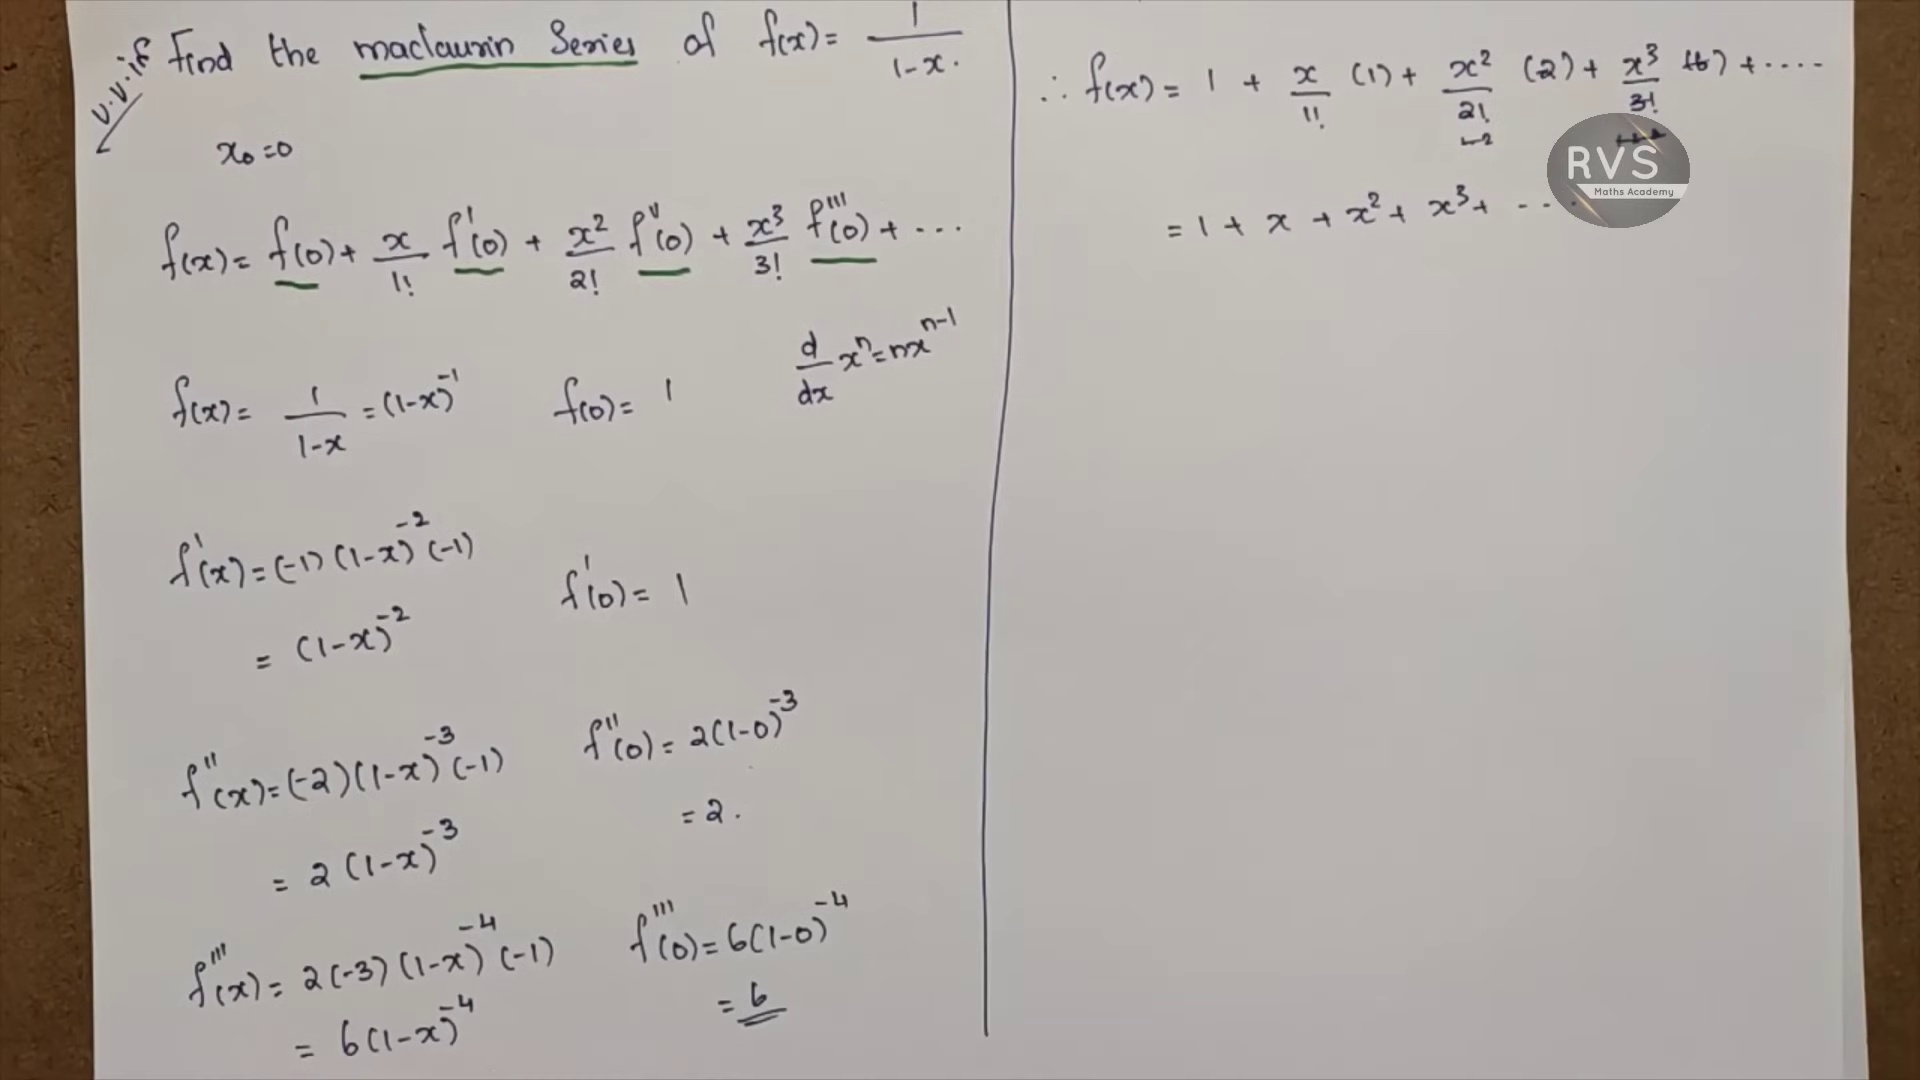 v.v.if
Find the maclaurin Series of f(x) = 1/(1-x).
x₀ = 0
f(x) = f(0) + x/1! f'(0) + x²/2! f''(0) + x³/3! f'''(0) + ...
d/dx xⁿ = nxⁿ⁻¹
f(x) = 1/(1-x) = (1-x)⁻¹ f(0) = 1
f'(x) = (-1)(1-x)⁻²(-1)
= (1-x)⁻² f'(0) = 1
f''(x) = (-2)(1-x)⁻³(-1) f''(0) = 2(1-0)⁻³
= 2(1-x)⁻³ = 2.
f'''(x) = 2(-3)(1-x)⁻⁴(-1) f'''(0) = 6(1-0)⁻⁴
= 6(1-x)⁻⁴ = 6
∴ f(x) = 1 + x/1! (1) + x²/2! (2) + x³/3! (6) + ....
= 1 + x + x² + x³ + ....
RVS
Maths Academy